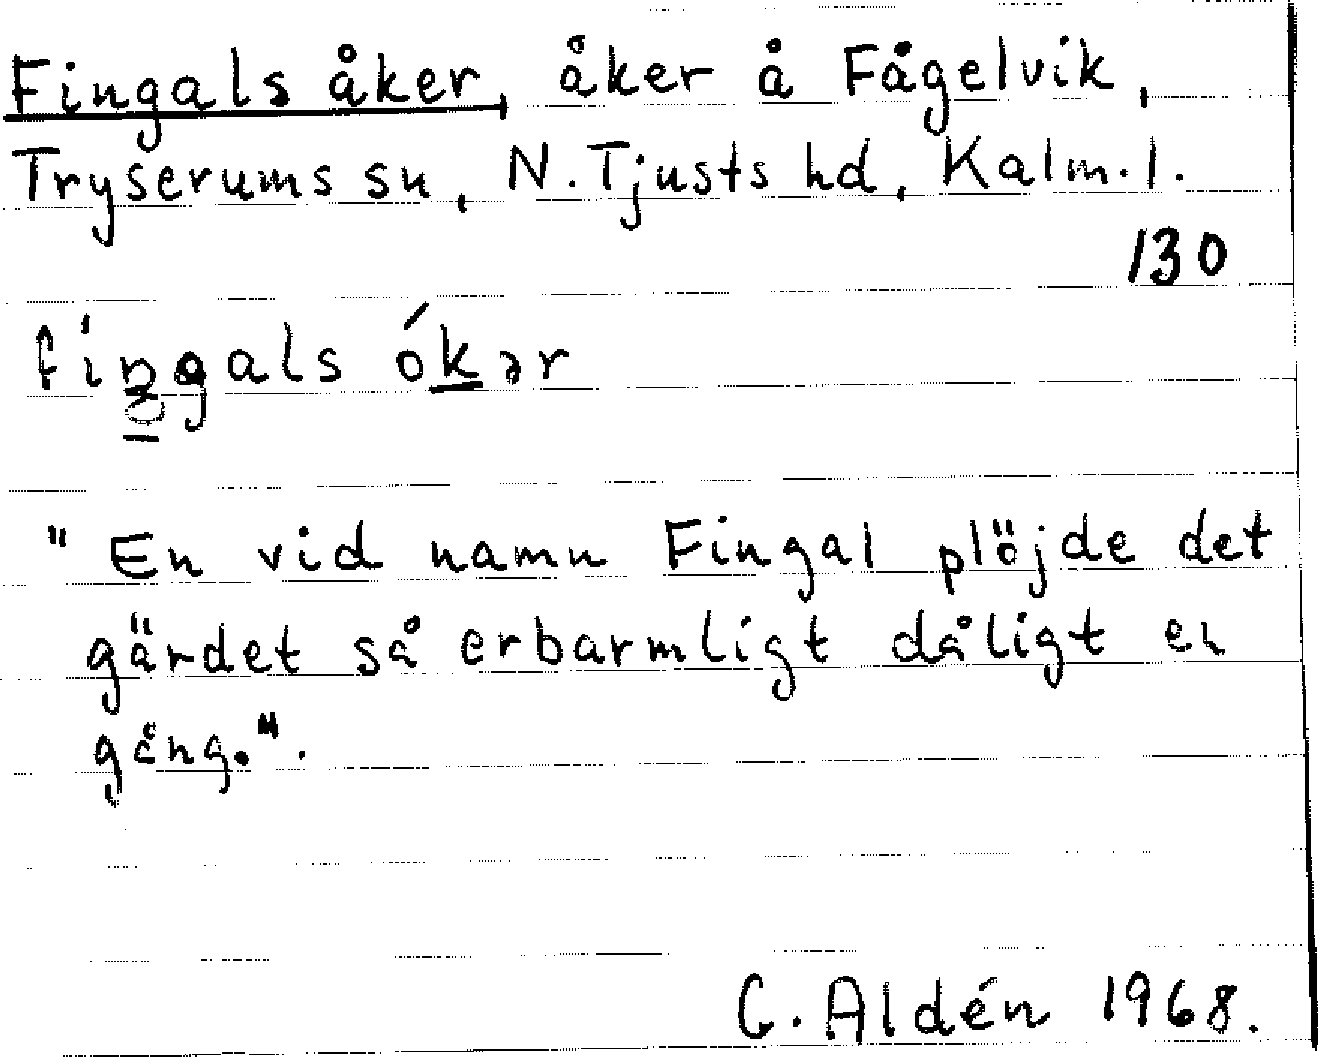 Fingals åker, åker å Fågelvik,
Tryserums sn, N. Tjusts hd, Kalm. l.
130
fiŋgals ókər
"En vid namn Fingal plöjde det
gärdet så erbarmligt dåligt en
gång.".
G. Aldén 1968.